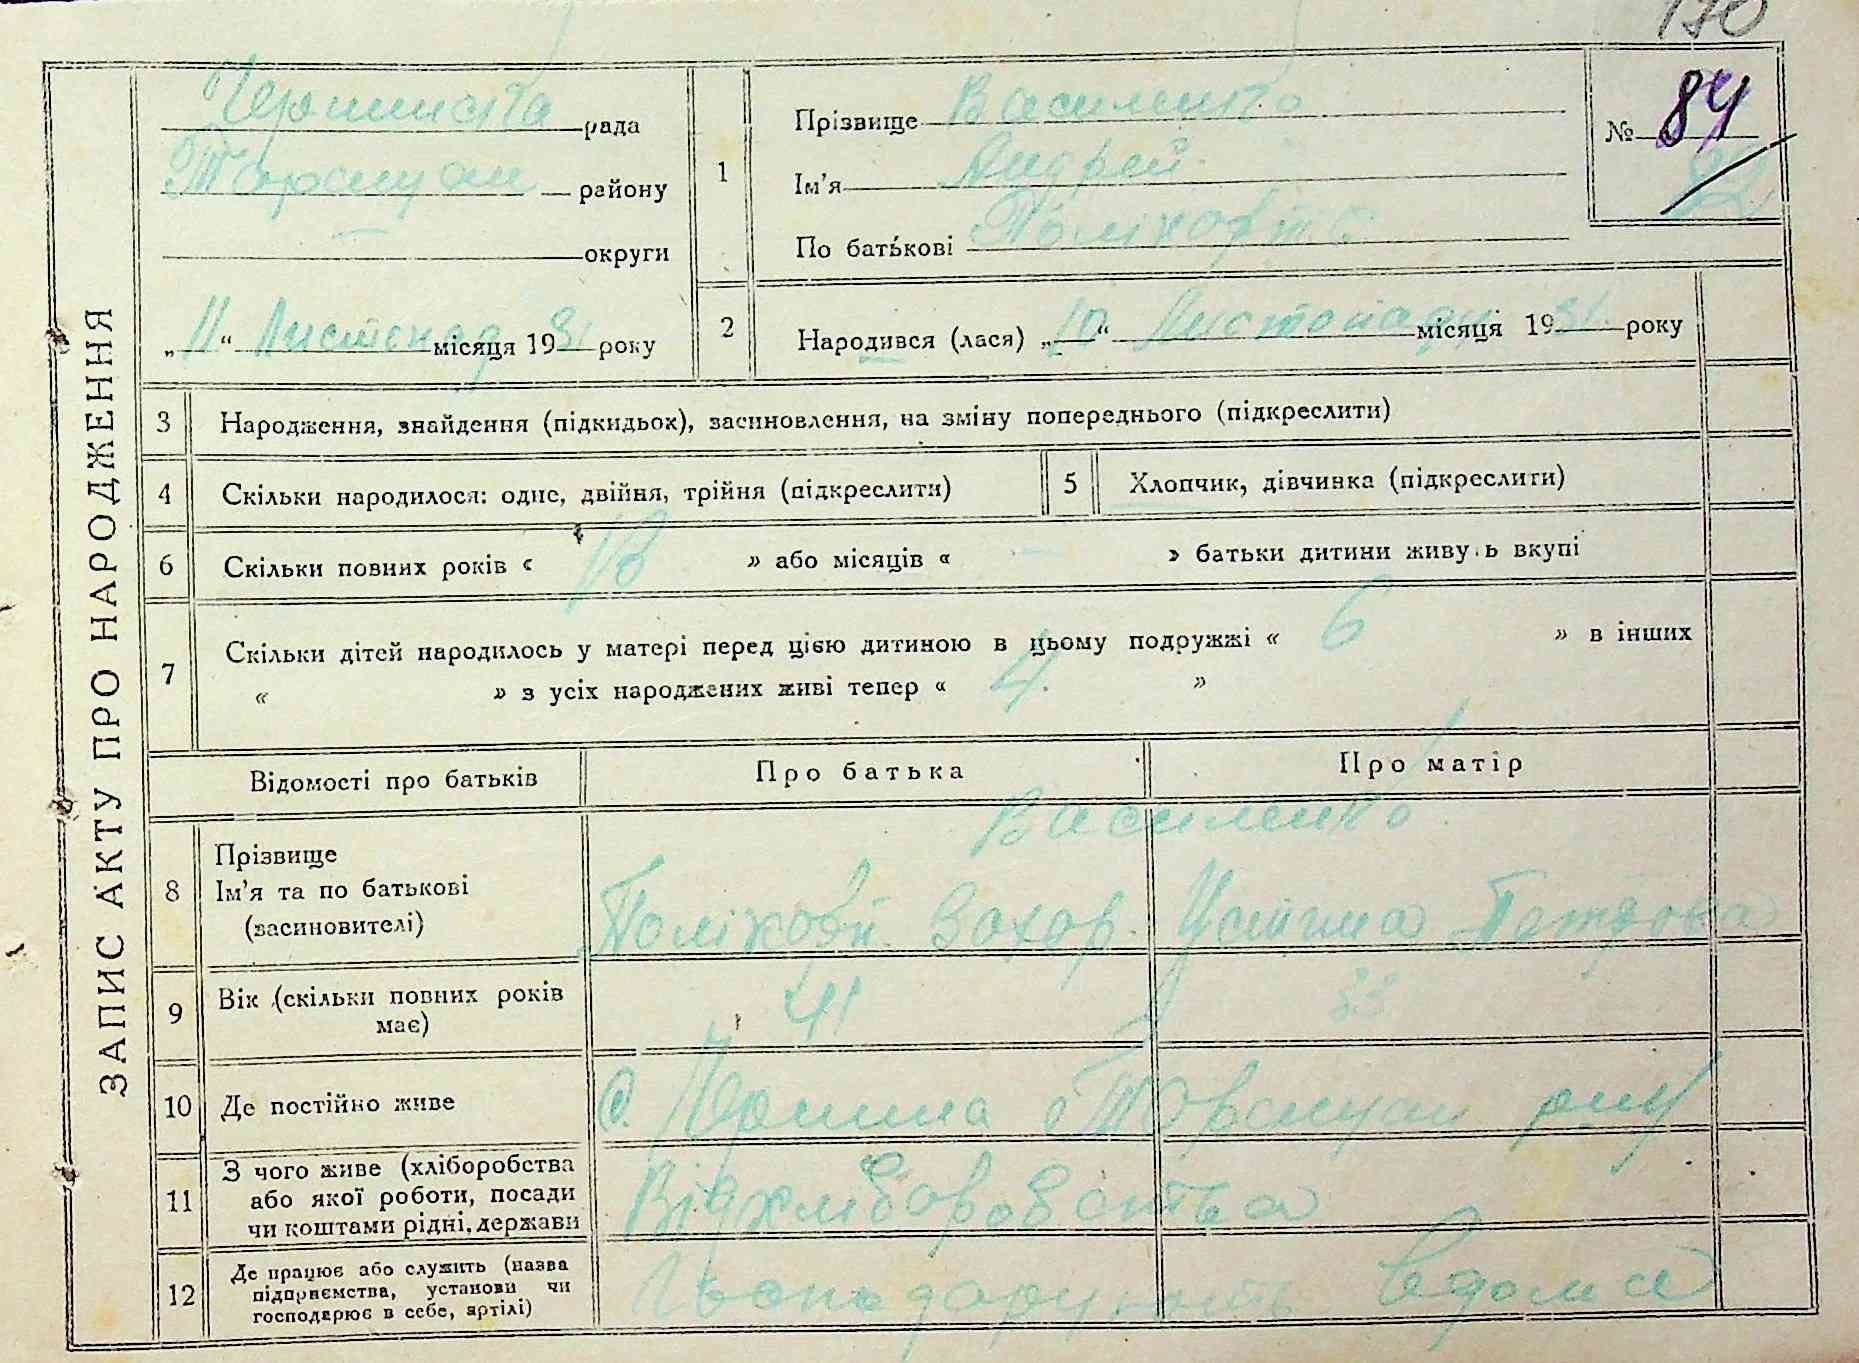 170
ЗАПИС АКТУ ПРО НАРОДЖЕННЯ
рада
району
округи
„11“ Листопад місяця 1931 року
1
Прізвище Василенко
Ім'я Андрей
По батькові
№ 84
2
Народився (лася) „10“ Листопаду місяця 1931 року
3 Народження, знайдення (підкидьок), засиновлення, на зміну попереднього (підкреслити)
4 Скільки народилося: одне, двійня, трійня (підкреслити)
5 Хлопчик, дівчинка (підкреслити)
6 Скільки повних років « 13 » або місяців « — » батьки дитини живуть вкупі
7 Скільки дітей народилось у матері перед цією дитиною в цьому подружжі « 6 » в інших
« » з усіх народжених живі тепер « 4. »
Відомості про батьків
Про батька
Про матір
8 Прізвище
Ім'я та по батькові
(засиновителі)
Василенко
Захар.
9 Вік (скільки повних років
має)
41
33
10 Де постійно живе
с.
11 З чого живе (хліборобства
або якої роботи, посади
чи коштами рідні, держави
Від хліборобства
12 Де працює або служить (назва
підприємства, установи чи
господарює в себе, артілі)
Господарують вдома